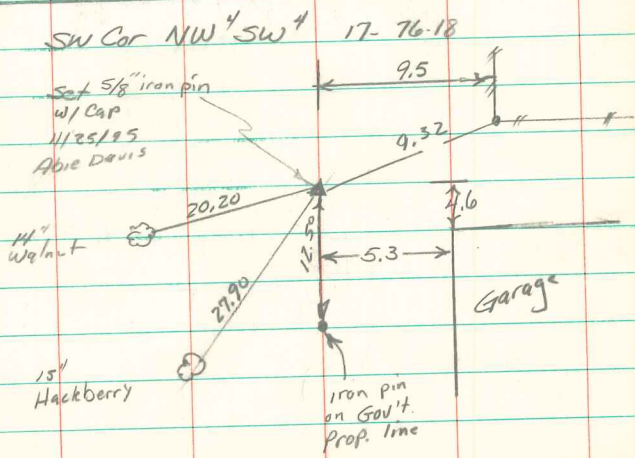 SW Cor NW⁴ SW⁴ 17-76-18
9.5
Set 5/8" iron pin
w/ Cap
11/25/95
Abie Davis
9.32
20.20
4.6
14"
Walnut
12.50
5.3
27.90
Garage
15"
Hackberry
iron pin
on Gov't.
Prop. line